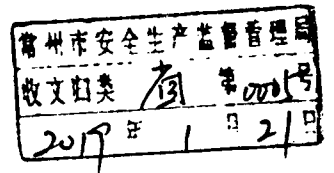 常州市安全生产监督管理局
收文归类 省 第0005号
2019年1月21日